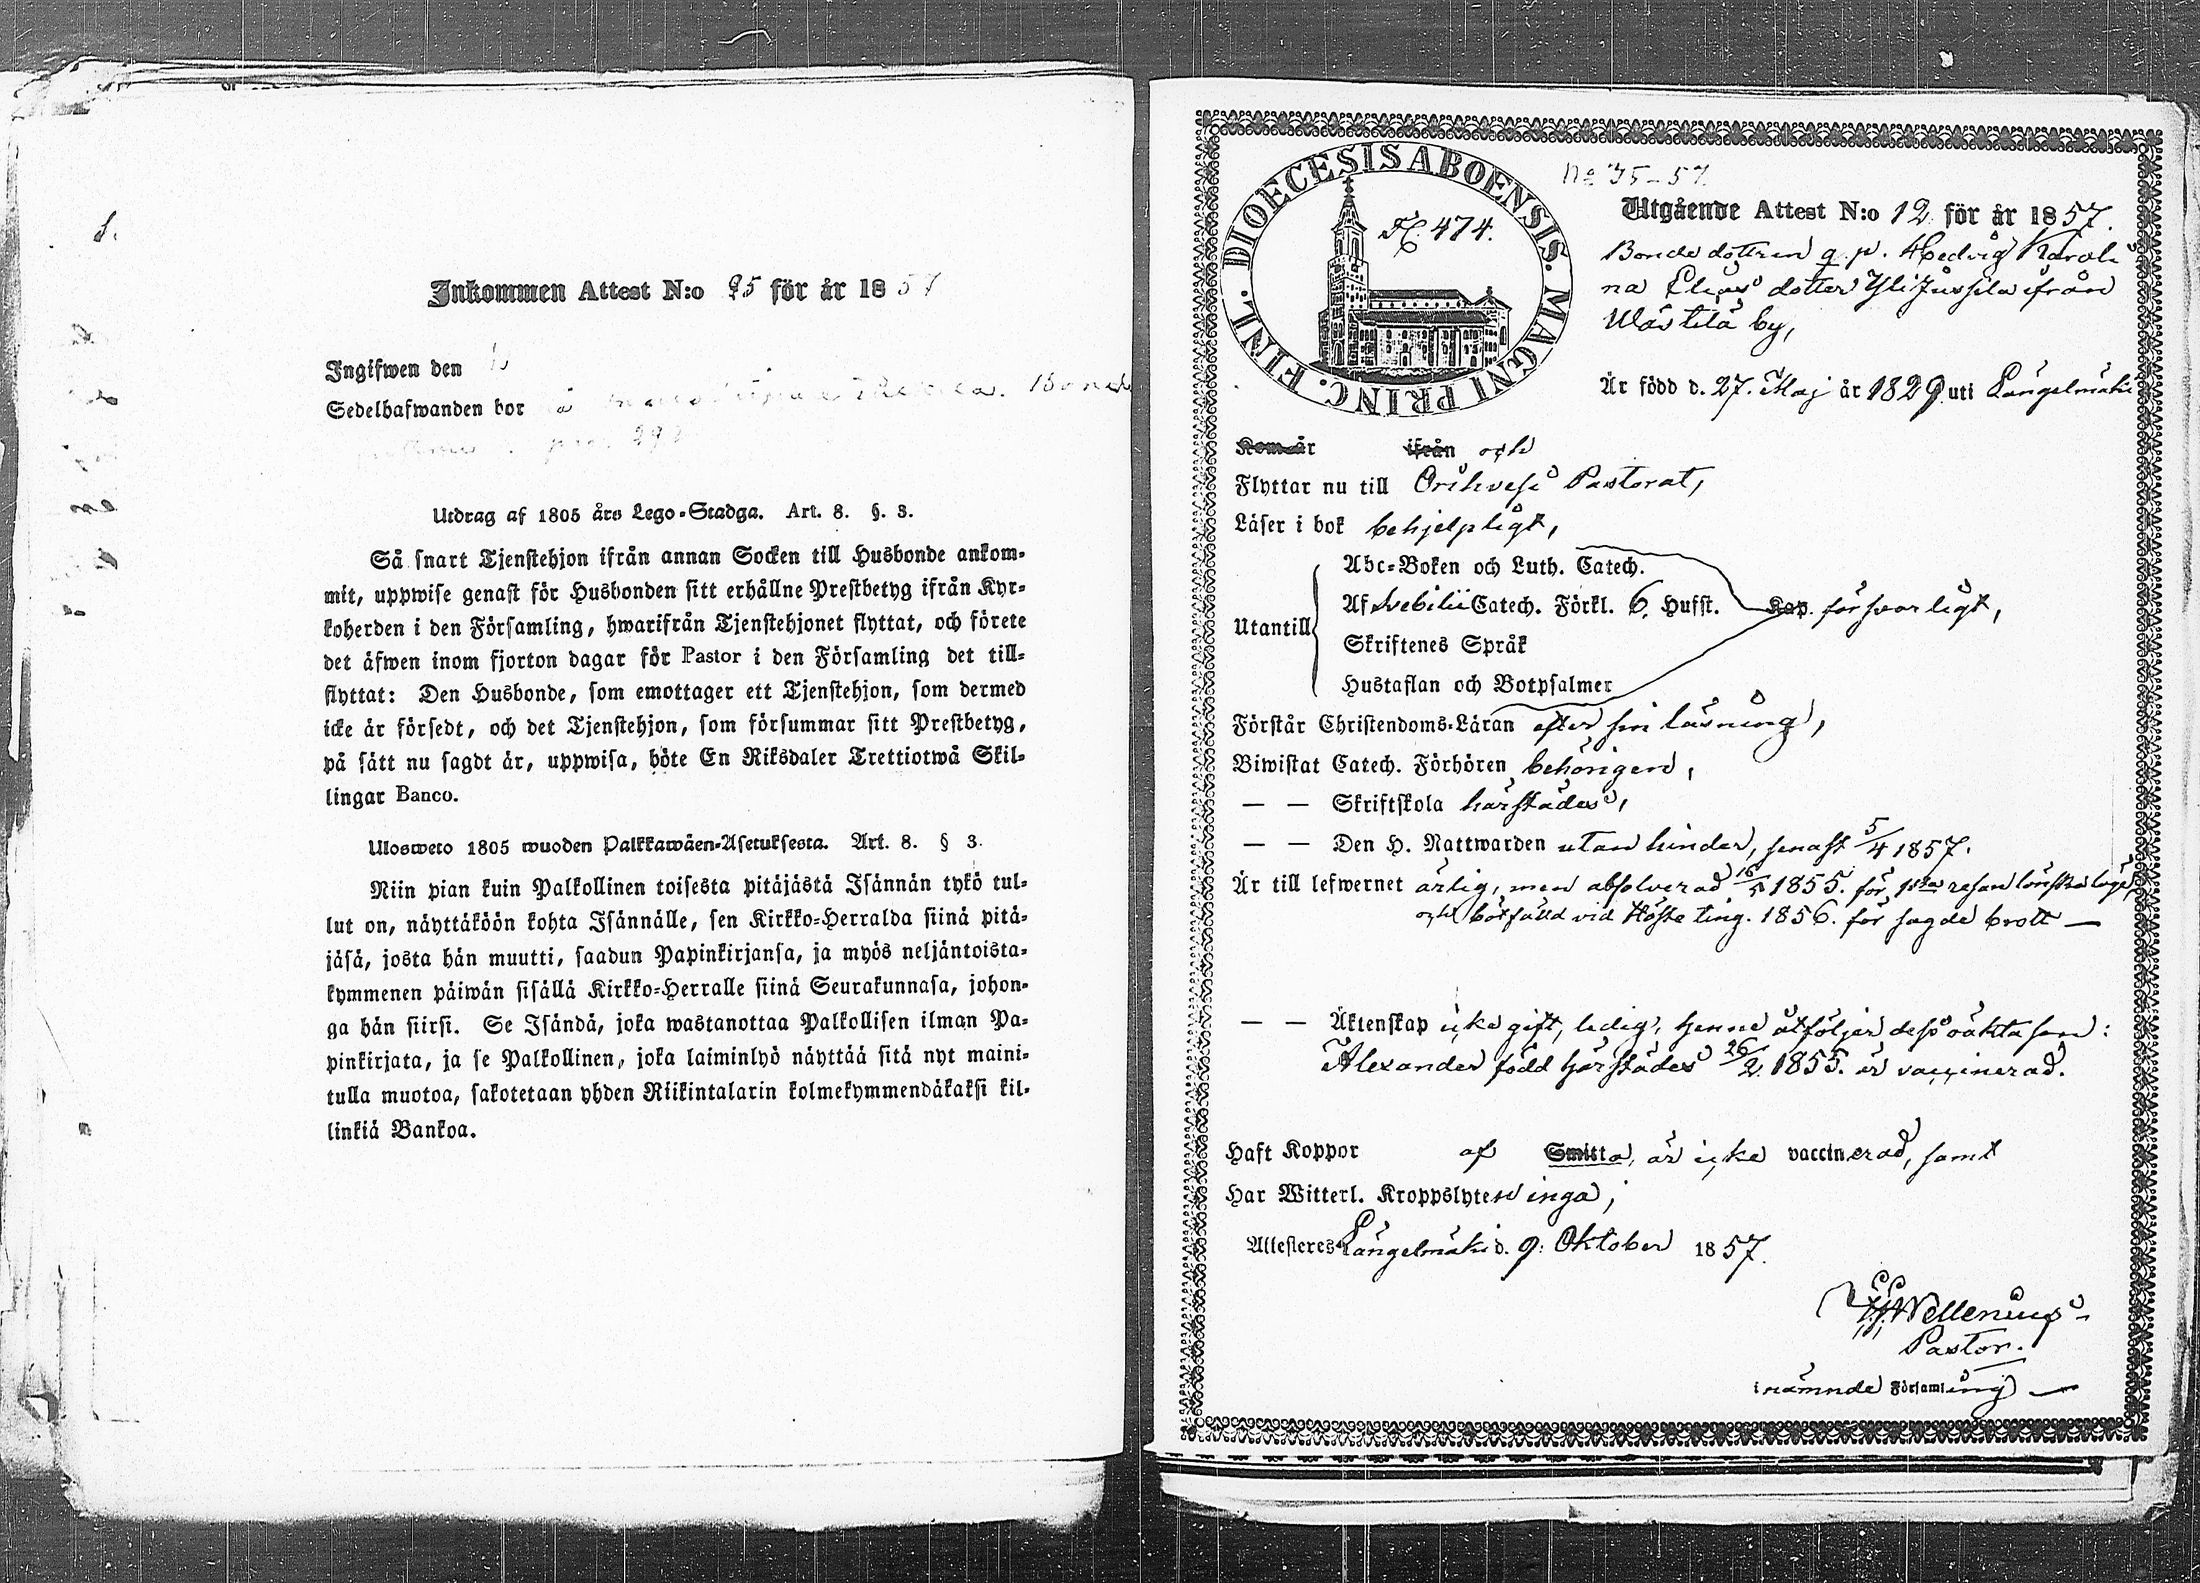 Inkommen Attest N:o 95 för år 1857
Ingifwen den
Sedelhafwanden bor
Utdrag af 1805 års Lego-Stadga. Art. 8. §. 3.
Så snart Tjenstehjon ifrån annan Socken till Husbonde ankom-
mit, uppwise genast för Husbonden sitt erhållne Prestbetyg ifrån Kyr-
koherden i den Församling, hwarifrån Tjenstehjonet flyttat, och förete
det äfwen inom fjorton dagar för Pastor i den Församling det till-
flyttat: Den Husbonde, som emottager ett Tjenstehjon, som dermed
icke är försedt, och det Tjenstehjon, som försummar sitt Prestbetyg,
på sätt nu sagdt är, uppwisa, böte En Riksdaler Trettiotwå Skil-
lingar Banco.
Ulosweto 1805 wuoden Palkkawäen-Asetuksesta. Art. 8. § 3.
Niin pian kuin Palkollinen toisesta pitäjästä Isännän tykö tul-
lut on, näyttäköön kohta Isännälle, sen Kirkko-Herralda siinä pitä-
jäsä, josta hän muutti, saadun Papinkirjansa, ja myös neljäntoista-
kymmenen päiwän sisällä Kirkko-Herralle siinä Seurakunnasa, johon-
ga hän siirsi. Se Isändä, joka wastanottaa Palkollisen ilman Pa-
pinkirjata, ja se Palkollinen, joka laiminlyö näyttää sitä nyt maini-
tulla muotoa, sakotetaan yhden Riikintalarin kolmekymmendäkaksi kil-
linkiä Bankoa.
DIOECESIS ABOENSIS. MAGNI PRINC. FINL.
474.
No 35-57.
Utgående Attest N:o 12 för år 1857.
Bonde dottren q. p. Hedvig Karoli-
na Elias dotter Yli Jussila ifrån
Wästilä by,
Är född d. 27. Maj år 1829 uti Längelmäki
Kom år ifrån och
Flyttar nu till Orihvesi Pastorat,
Läser i bok behjelpligt,
Abc-Boken och Luth. Catech.
Af Svebilii Catech. Förkl. 6. Hufst. Kap. försvarligt,
Utantill
Skriftenes Språk
Hustaflan och Botpsalmer
Förstår Christendoms-Läran efter sin läsning,
Biwistat Catech. Förhören behörigen,
— — Skriftskola härstädes,
— — Den H. Nattwarden utan hinder, senast 5/4 1857.
Är till lefwernet ärlig, men absolverad 16/5 1855. för 1sta resan lönskaläge,
och bötfälld vid Höste ting. 1856. för sagde brott —
— — Äktenskap icke gift, ledig, henne åtföljer dess oäkta son:
Alexander född härstädes 26/2 1855. är vaccinerad.
Haft Koppor af Smitta, är icke vaccinerad, samt
Har Witterl. Kroppslyten inga;
Attesteres Längelmäki d. 9: Oktober 1857.
Wellenius
Pastor.
i nämnde Församling —